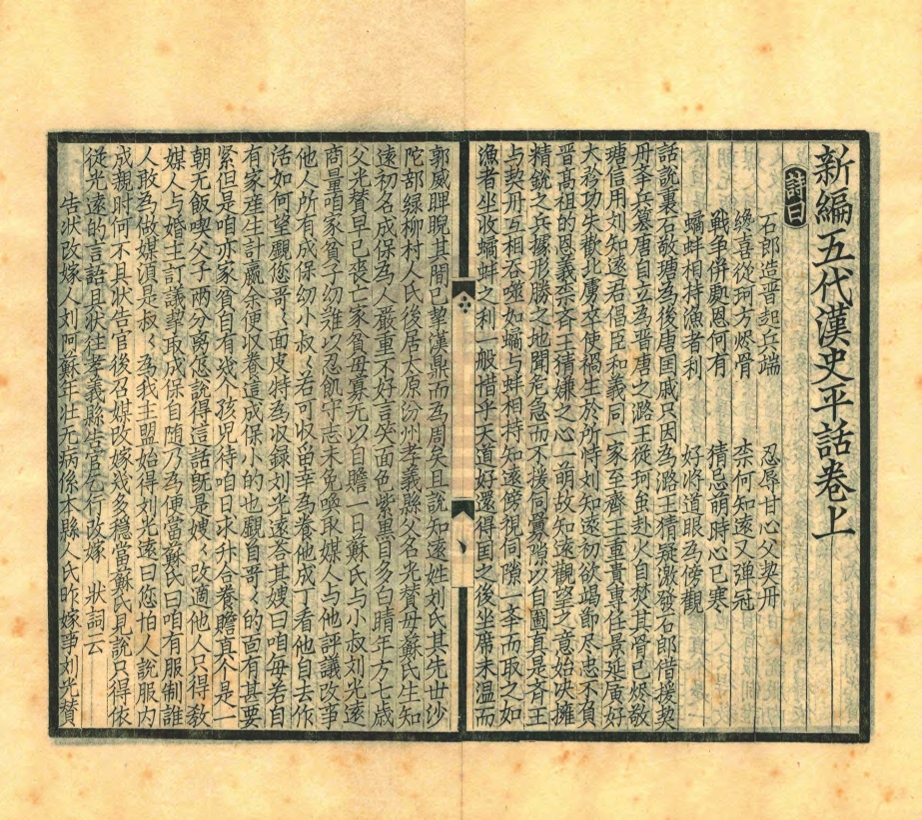 新編五代漢史平話卷上
詩曰
石郎造晋起兵端　忍辱甘心父契丹
終喜從珂方燼骨　柰何知遠又弹冠
戰争併興恩何有　猜忌萌時心已寒
蠣蚌相持漁者利　好將道眼為傍觀
話說裏石敬瑭為後唐囯戚只因為潞王猜疑激發石郎借援契
丹夲兵簒唐自立為晋唐之潞王從珂虽赴火自焚其骨已燼敬
瑭信用刘知遠君倡臣和義同一家至齊王重貴專任景延廣好
大矜功失歡北虜卒使禍生於所恃刘知遠初欲竭節尽忠不負
晋高祖的恩義柰齐王猜嫌之心一萌故知遠觀望之意始决擁
精銳之兵據形勝之地聞危急而不援伺釁隙以自圖直是齐王
与契丹互相吞噬如蠣与蚌相持知遠傍視伺隙一夲而取之如
漁者坐收蠣蚌之利一般惜乎天道好還得囯之後坐席未温而
郭威睥睨其間已挈漢鼎而為周矣且說知遠姓刘氏其先世沙
陀部緑柳村人氏後居太原汾州孝義縣父名光賛母蘇氏生知
遠初名成保為人嚴重不好言笑面色紫黑目多白睛年方七歲
父光賛早已喪亡家貧母寡无以自贍一日蘇氏与小叔刘光遠
商量咱家貧子幼难以忍飢守志未免喚取媒人与他評議改事
他人所有成保幼小叔〻若可收留幸為養他成丁看他自去作
活如何望覷您哥〻面皮特為収録刘光遠荅其嫂曰咱每若自
有家産生計贏余便収養這成保小的也覷自哥〻的面有甚要
緊但是咱亦家貧自有幾个孩児待咱日求升合養贍真个是一
朝无飯喫父子两分离怎說得這話既是嫂〻改適他人只得教
媒人与婚主訂議挈取成保自随乃為便當蘇氏曰咱有服制誰
人敢為做媒湏是叔〻為我主盟始得刘光遠曰您怕人說服内
成親时何不具状告官後召媒改嫁幾多穩當蘇氏見說只得依
從光遠的言語且状往孝義縣告官先行改嫁　状詞云
告状改嫁人刘阿蘇年壮无病係本縣人氏昨嫁事刘光賛